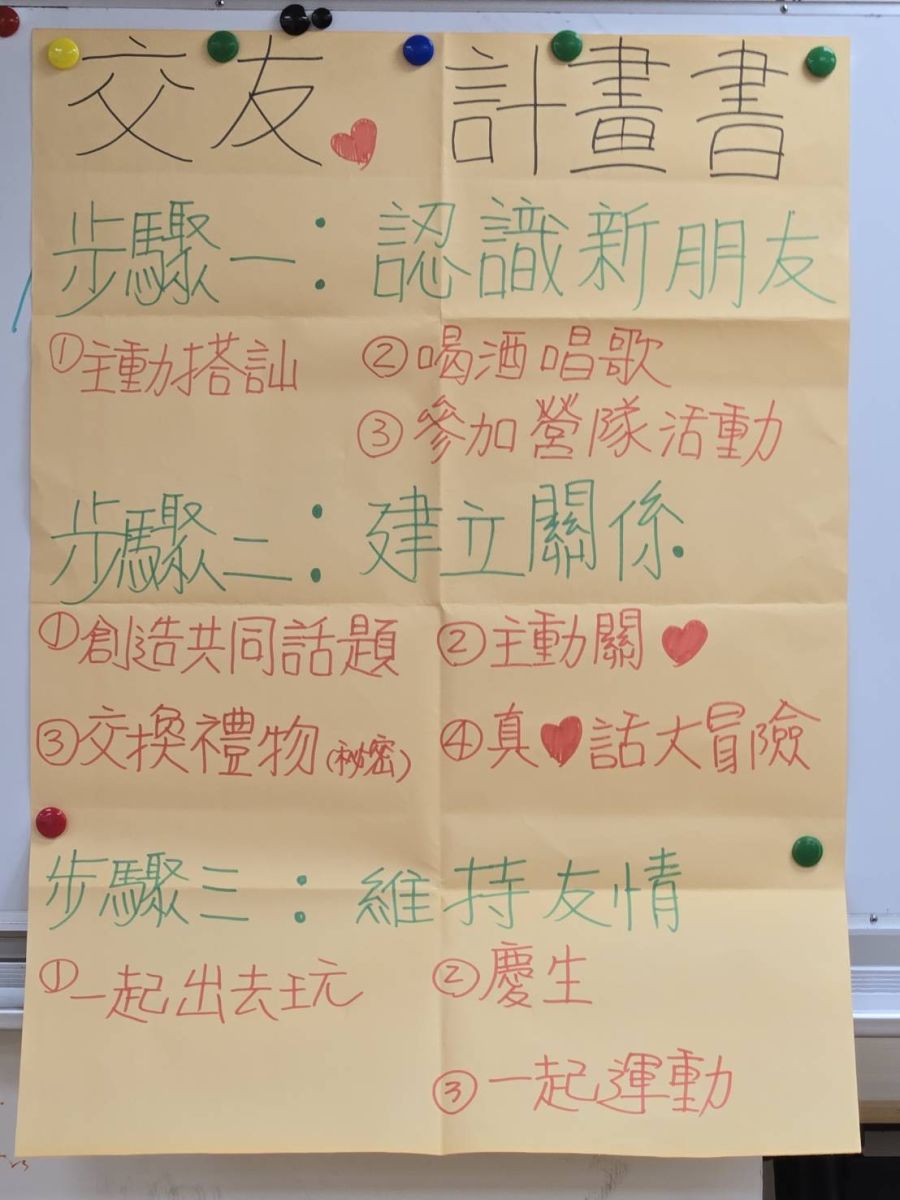 交友♥計畫書
步驟一：認識新朋友
①主動搭訕 ②喝酒唱歌
③參加營隊活動
步驟二：建立關係
①創造共同話題 ②主動關♥
③交換禮物(祕密) ④真♥話大冒險
步驟三：維持友情
①一起出去玩 ②慶生
③一起運動